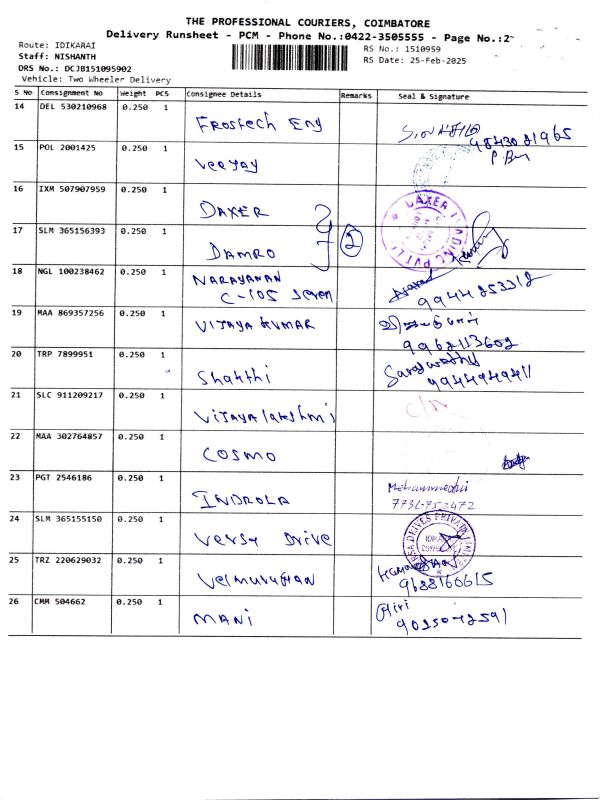 THE PROFESSIONAL COURIERS, COIMBATORE
Delivery Runsheet - PCM - Phone No.:0422-3505555 - Page No.:2
Route: IDIKARAI
RS No.: 1510959
Staff: NISHANTH
RS Date: 25-Feb-2025
DRS No.: DCJB151095902
Vehicle: Two Wheeler Delivery
S No Consignment No Weight PCS Consignee Details Remarks Seal & Signature
14 DEL 530210968 0.250 1 Frostech Eng
9843081965
15 POL 2001425 0.250 1 Veejay
16 IXM 507907959 0.250 1 DAXER
DAXER TRADING PVT LTD
17 SLM 365156393 0.250 1 DAMRO 2
18 NGL 100238462 0.250 1 NARAYANAN
C-105 Seven
9944253312
19 MAA 869357256 0.250 1 VIJAYA KUMAR
9962113602
20 TRP 7899951 0.250 1 Shakthi Saraswathy
9944949411
21 SLC 911209217 0.250 1 Vijayalakshmi C/N
22 MAA 302764857 0.250 1 COSMO
23 PGT 2546186 0.250 1 INDROLA
24 SLM 365155150 0.250 1 Versa Drive
VERSA DRIVES PRIVATE LIMITED
25 TRZ 220629032 0.250 1 Velmurughan
9688160615
26 CMM 504662 0.250 1 MANI Giri